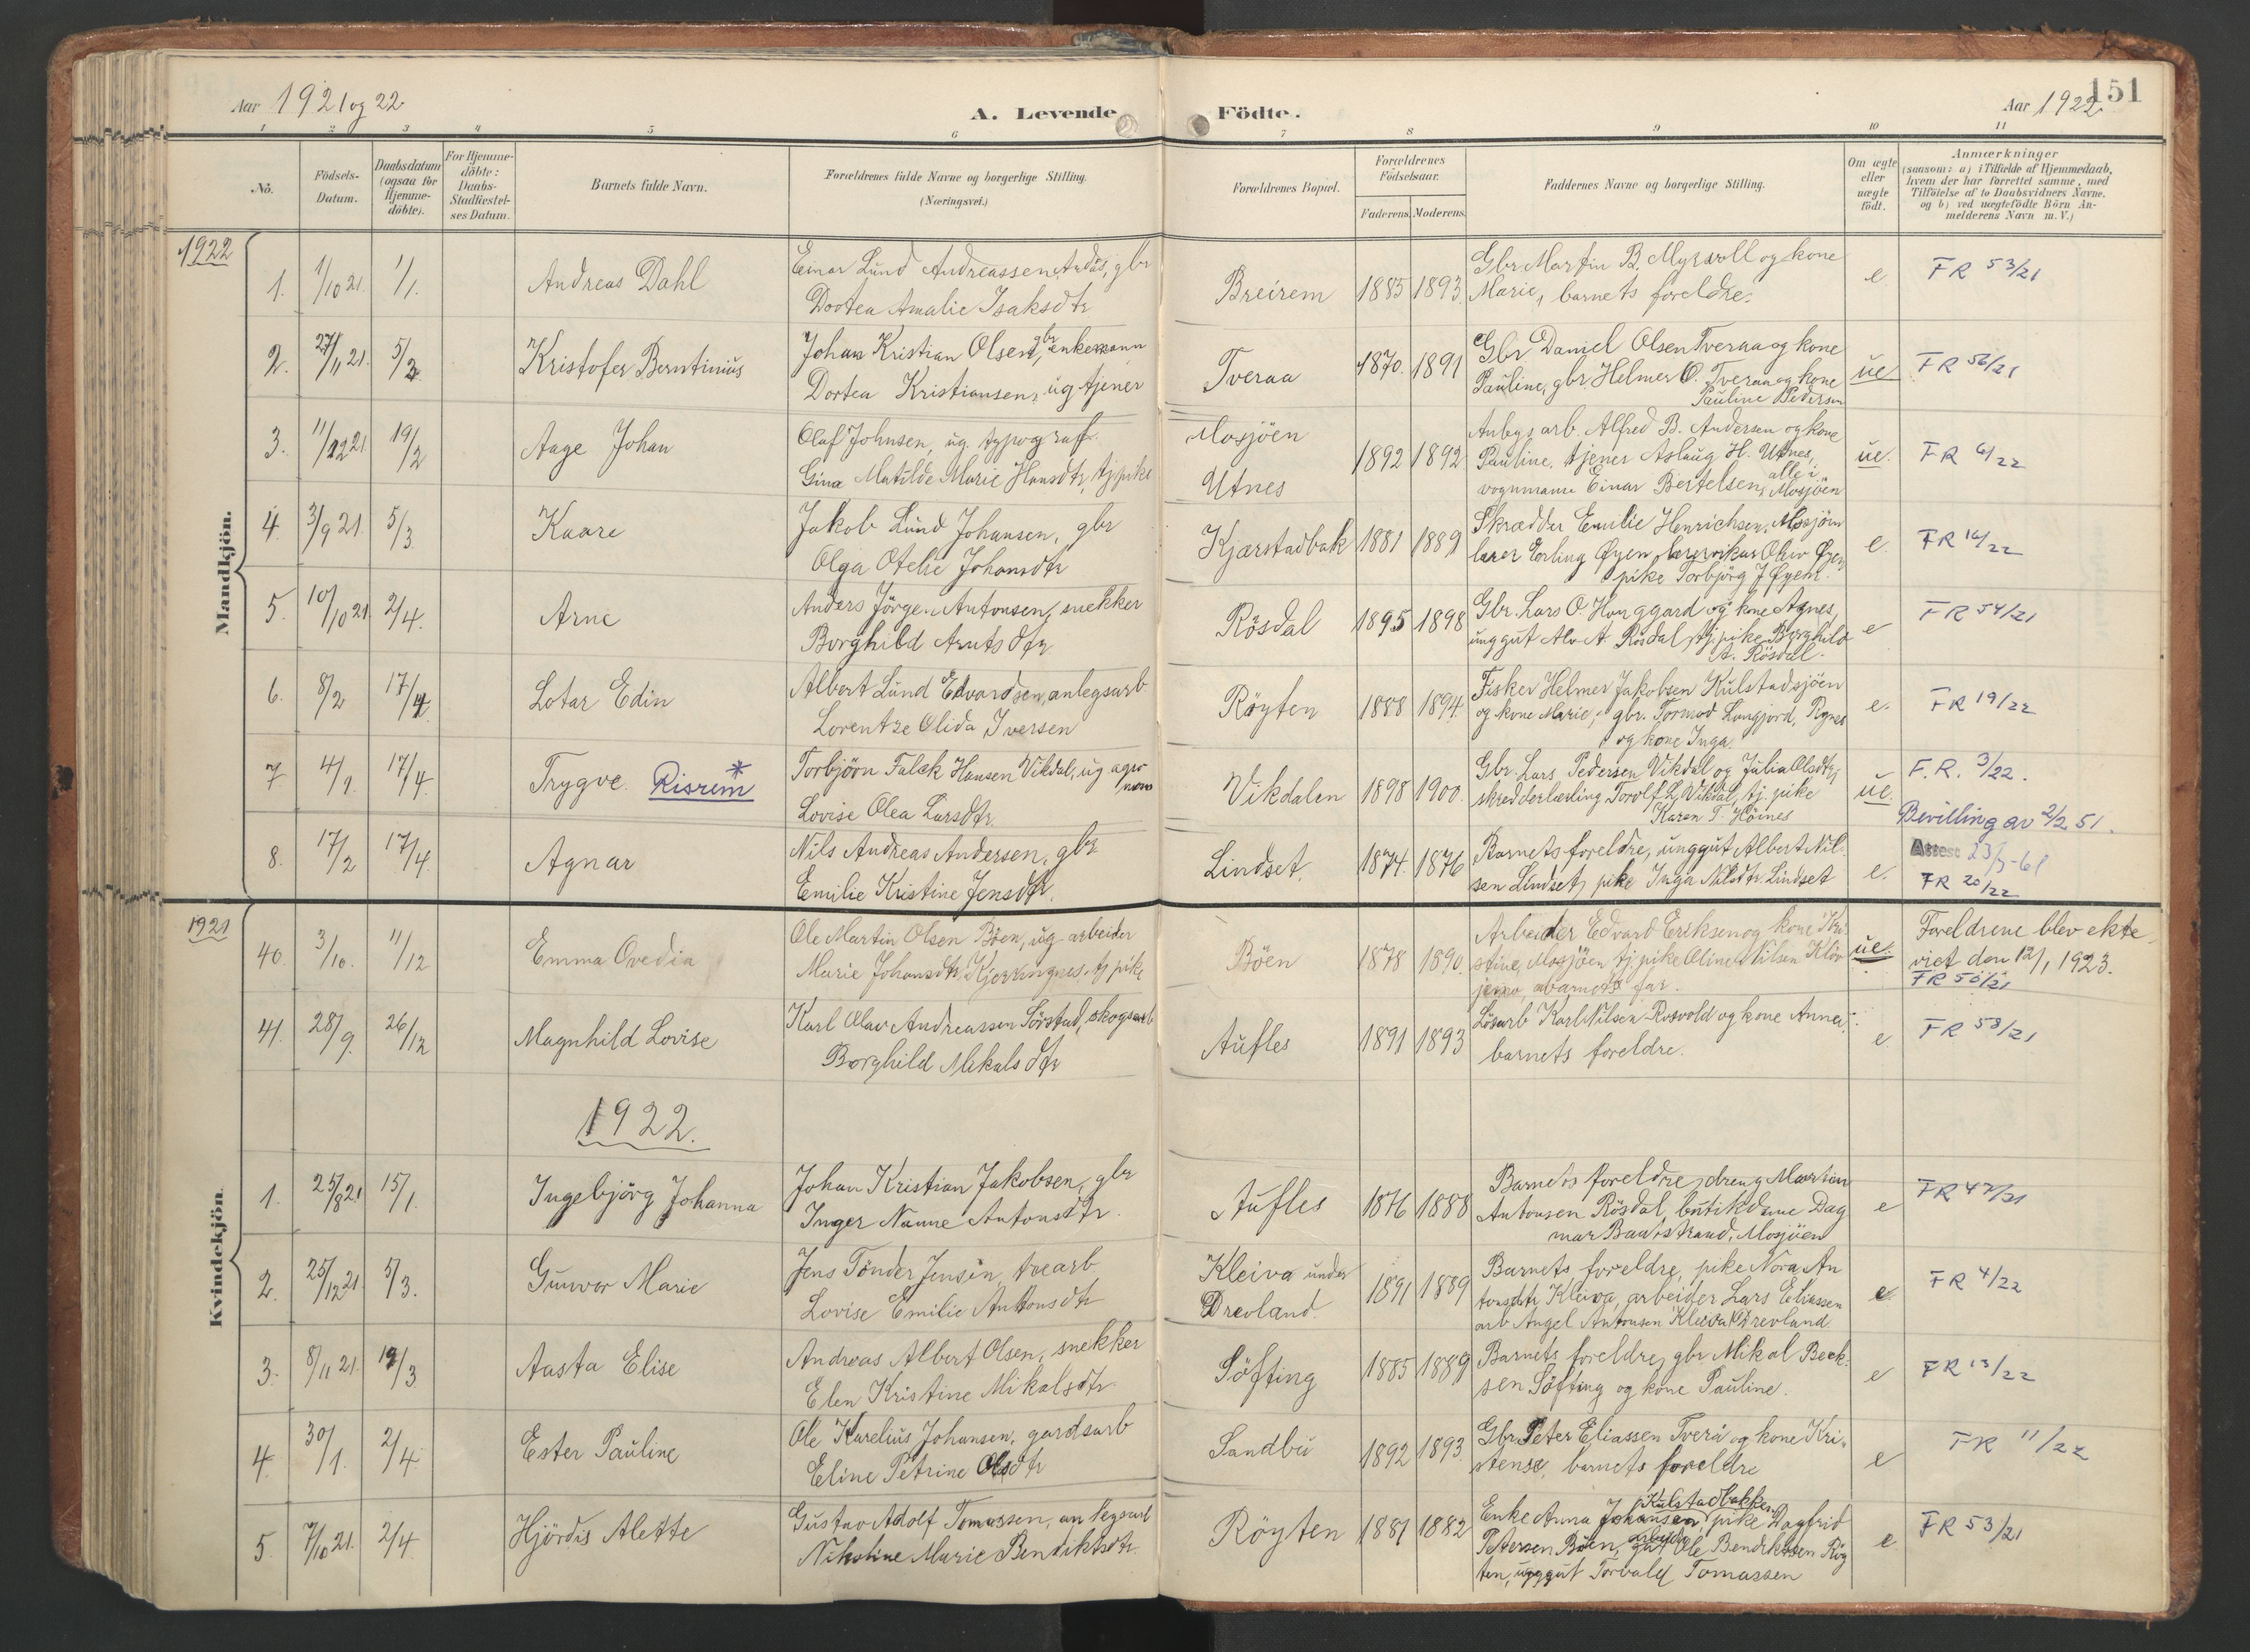 Aar 1921 og 22
A. Levende Födte.
Aar 1922
151
1 2 3 4 5 6 7 8 9 10 11
No.
Födsels-Datum.
Daabsdatum (ogsaa for Hjemme-döbte).
For Hjemme-döbte: Daabs-Stadfæstel-ses Datum.
Barnets fulde Navn.
Forældrenes fulde Navne og borgerlige Stilling.
(Næringsvei.)
Forældrenes Bopæl.
Forældrenes Födselsaar.
Faderens. Moderens.
Faddernes Navne og borgerlige Stilling.
Om ægte eller uægte födt.
Anmærkninger
(saasom: a) i Tilfælde af Hjemmedaab, hvem der har forrettet samme, med Tilföielse af to Daabsvidners Navne. og b) ved uægtefödte Börn An-melderens Navn m. V.)
Mandkjön.
1922
1. 1/10 21. 1/1. Andreas Dahl
Einar Lund Andreassen Ardås, gbr
Dortea Amalie Isaksdtr
Breirem 1885 1893
Gbr Martin B. Myrvoll og kone
Marie, barnets foreldre.
e FR 53/21
2. 27/11 21. 5/2 Kristofer Berntinius
Johan Kristian Olsen, gbr enkemann
Dortea Kristiansen, ug tjener
Tveraa 1870. 1891
Gbr Daniel Olsen Tveraa og kone
Pauline, gbr Helmer O. Tveraa og kone
Pauline Pedersen
ue FR 56/21
3. 11/12 21 19/2 Aage Johan
Olaf Johnsen, ug. typograf
Gina Matilde Marie Hansdtr, tj pike
Mosjöen
Utnes
1892 1892
Anbygs arb. Alfred B. Andersen og kone
Pauline, tjener Aslaug H. Utnes,
vognmann Einar Bertelsen, alle i Mosjöen
ue. FR 6/22
4. 3/9 21 5/3 Kaare
Jakob Lund Johansen, gbr
Olga Otelie Johansdtr
Kjærstadbak 1881 1889
Skrædder Emilie Henrichsen, Mosjöen
lærer Erling Øyen, lærervikar Olav Øyen
pike Torbjörg J Øyen.
e. FR 16/22
5. 10/10 21 2/4. Arne
Anders Jörgen Antonsen, snekker
Borghild Arntsdtr
Rösdal 1895 1898
Gbr. Lars O. Hauggard og kone Agnes,
unggut Alv A. Rösdal, tj. pike Borghild
A. Rösdal.
e FR 54/21
6. 8/2 17/4 Lotar Edin
Albert Lund Edvardsen, anlegsarb
Lorentze Olida Iversen
Röyten 1888 1894.
Fisker Helmer Jakobsen Kulstadsjöen
og kone Marie, gbr. Tormod Langjord, Rynes
og kone Inga.
e. FR 19/22
7. 4/1. 17/4. Trygve. Risrem *
Torbjörn Falck Hansen Vikdal, ug agro
nom
Lovise Olea Larsdtr
Vikdalen 1898 1900.
Gbr. Lars Pedersen Vikdal og Julia Olsdtr,
skredderlærling Torolf L. Vikdal, tj. pike
Karen T. Höines
ue. F.R. 3/22.
Bevilling av 2/2 51.
8. 17/2 17/4. Agnar
Nils Andreas Andersen, gbr
Emilie Kristine Jensdtr.
Lindset. 1874. 1876
Barnets foreldre, unggut Albert Nil-
sen Lindset, pike Inga Nilsdtr. Lindset
e. Attest 23/5-61
FR 20/22
Kvindekjön.
1921
40. 3/10. 11/12 Emma Ovedia
Ole Martin Olsen Böen, ug arbeider
Marie Johansdtr. Kjerringnes, tj pike
Böen 1878 1890.
Arbeider Edvard Eriksen og kone Kri-
stine, Mosjöen tj pike Oline Nilsen Klöv
jemo, barnets far.
ue. Foreldrene blev ekte
viet den 12/1 1923.
FR 50/21
41. 28/9. 26/12 Magnhild Lovise
Karl Olav Andreassen Sörstad, skogsarb
Borghild Mikalsdtr
Aufles 1891 1893
Lösarb Karl Nilsen Rosvold og kone Anna,
barnets foreldre.
e. FR 58/21
1922.
1. 25/8 21 15/1. Ingebjörg Johanna
Johan Kristian Jakobsen, gbr
Inger Nanne Antonsdtr.
Aufles 1876 1888
Barnets foreldre, dreng Martin
Antonsen Rösdal, butikdame Dag
mar Baustrand, Mosjöen
e FR 47/21
2. 25/12 21 5/3. Gunvor Marie
Jens Tönder Jensen, trearb
Lovise Emilie Antonsdtr
Kleiva under
Drevland.
1891 1889
Barnets foreldre, pike Nora An
tonsdtr Kleiva, arbeider Lars Eliassen
arb Angel Antonsen Kleiva Drevland
e FR 4/22
3. 8/11 21. 19/3 Aasta Elise
Andreas Albert Olsen, snekker
Elen Kristine Mikalsdtr
Söfting 1885 1889
Barnets foreldre, gbr. Mikal Beck-
sen Söfting og kone Pauline.
e FR 13/22
4. 30/1. 2/4. Ester Pauline
Ole Karelius Johansen, gardsarb
Eline Petrine Olsdtr
Sandbu 1892 1893.
Gbr Peter Eliassen Tverå og kone Kri-
stense, barnets foreldre
e FR 11/22
5. 7/10 21. 2/4. Hjördis Alette
Gustav Adolf Tomassen, anlegsarb
Nikoline Marie Bendiktsdtr.
Röyten 1881 1882
Enke Anna Johansen Kulstadbakken, pike Dagfrid
Petersen Böen, arbeider Ole Bendiktsen Röy
ten, unggut Torvald Tomassen
e FR 53/21